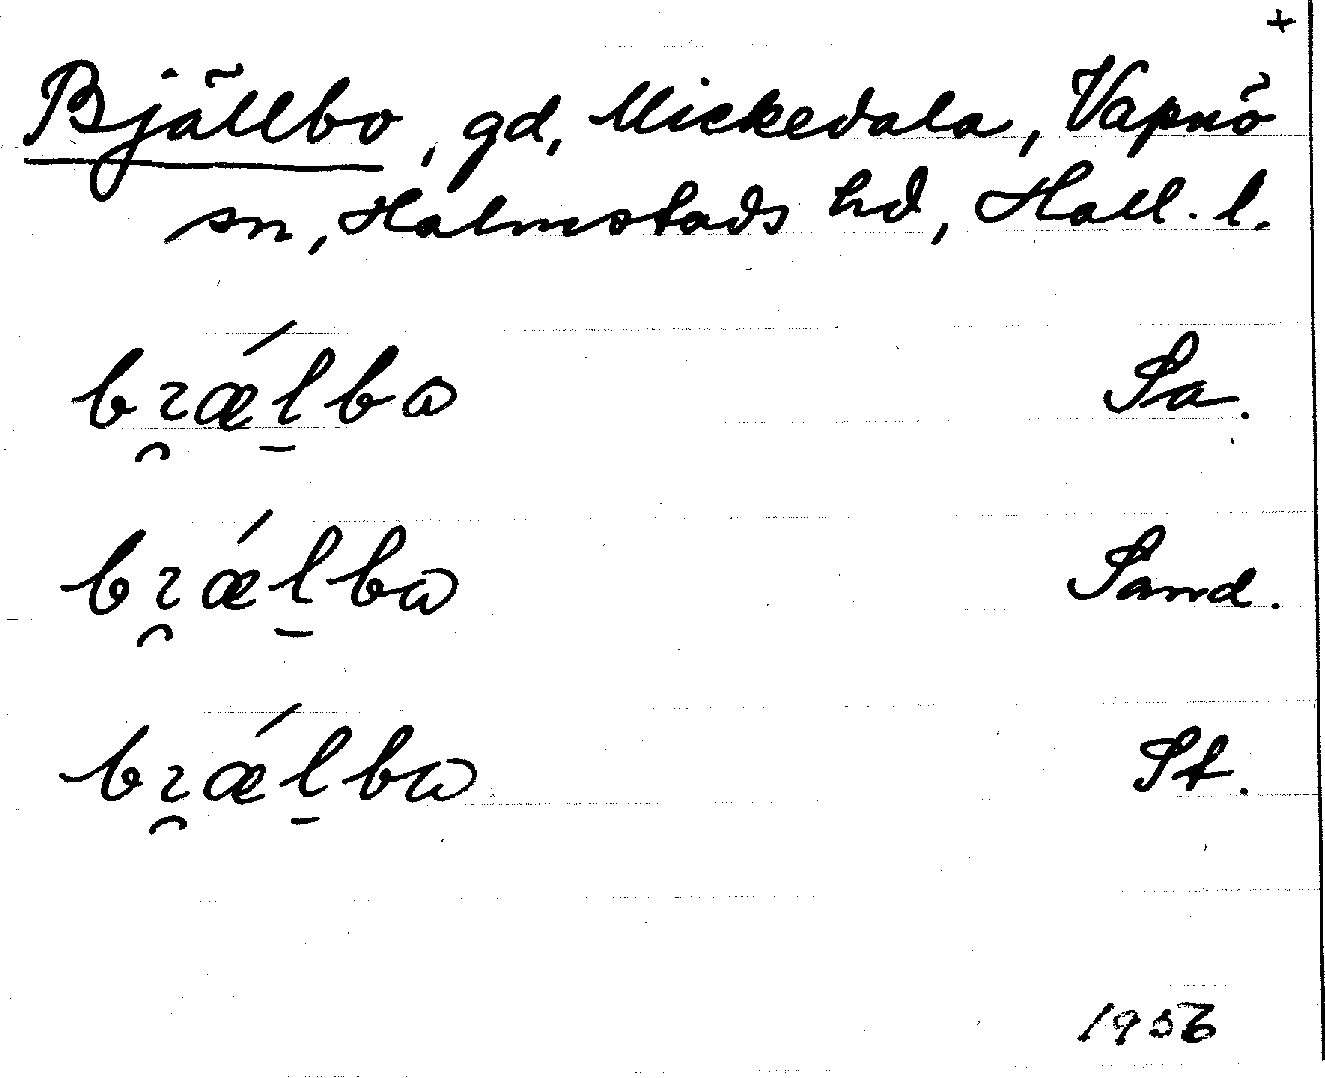 +
Bjällbo, gd, Mickedala, Vapnö
sn, Halmstads hd, Hall. l.
bɿ̯ǽl̠bɷ Sa.
bɿ̯ǽl̠bɷ Sand.
bɿ̯ǽl̠bɷ St.
1956